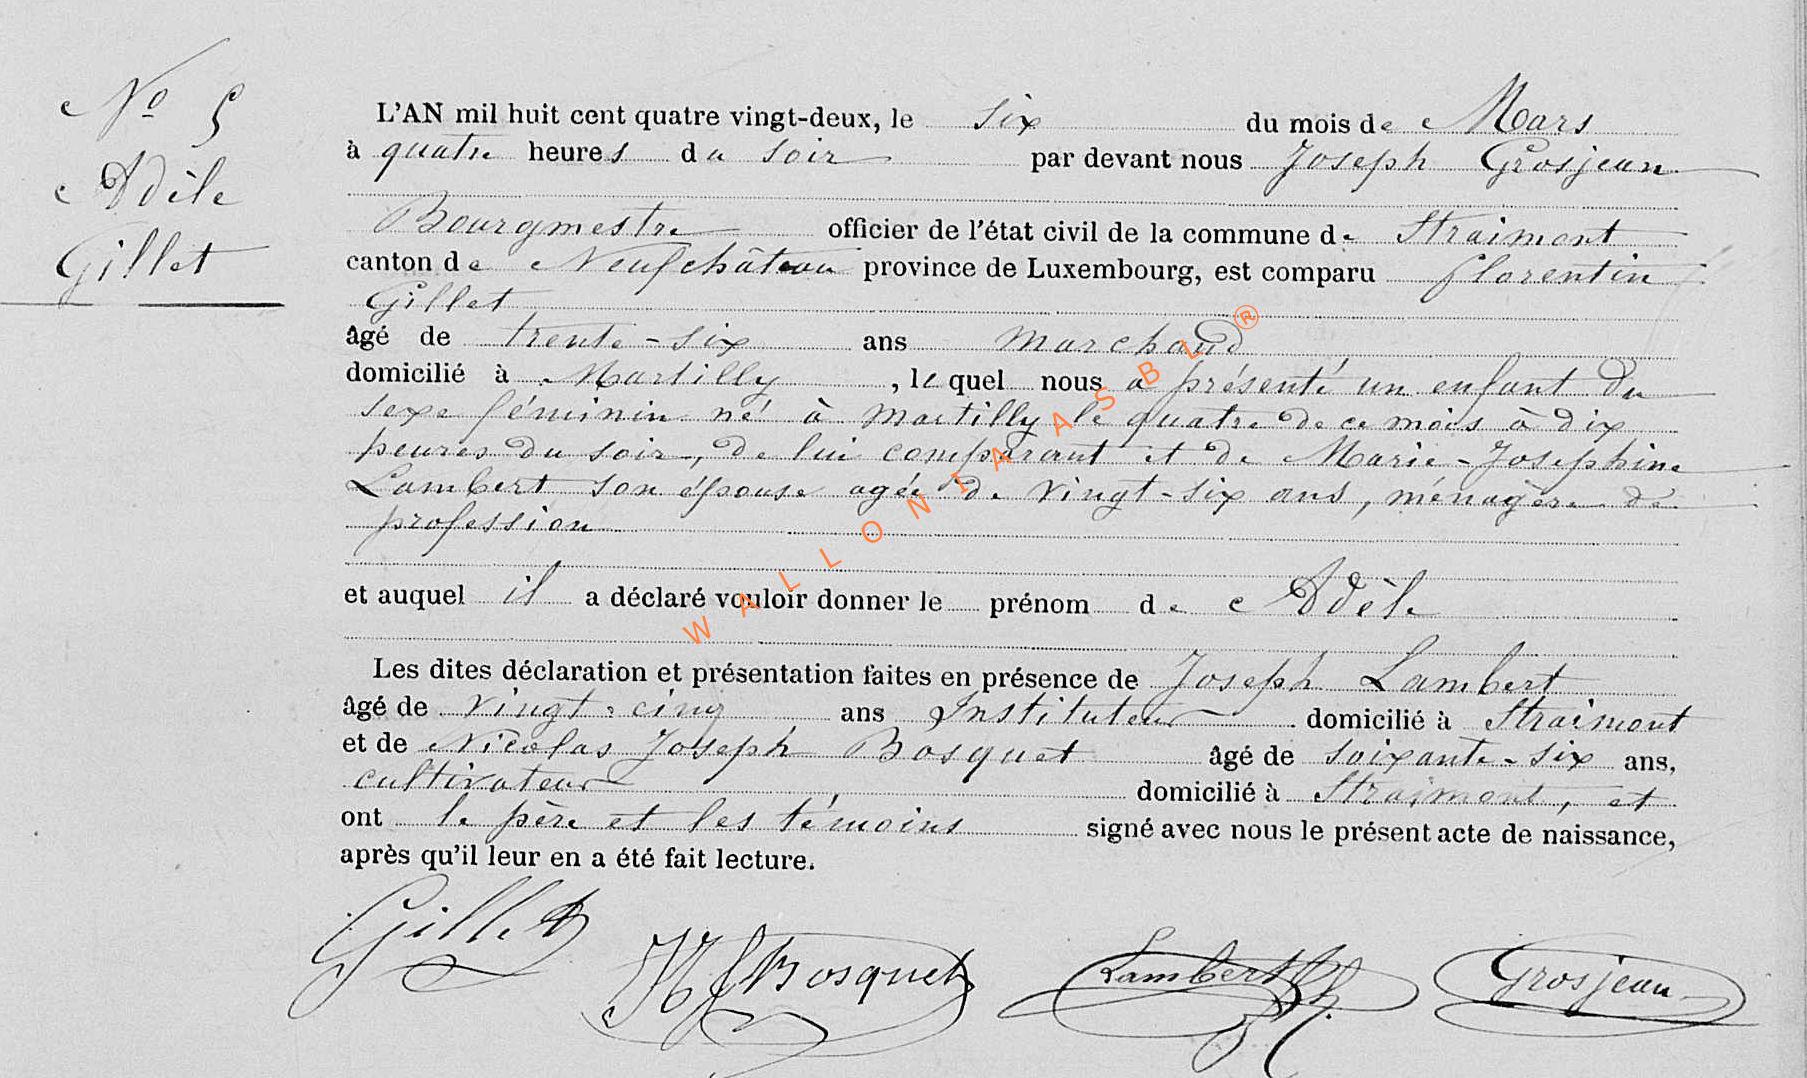 No 5
Adèle
Gillet
L'AN mil huit cent quatre vingt-deux, le six du mois de Mars
à quatre heures du soir par devant nous Joseph Grosjean
Bourgmestre officier de l'état civil de la commune de Straimont
canton de Neufchâteau province de Luxembourg, est comparu florentin
Gillet
âgé de trente-six ans marchand
domicilié à Martilly, lequel nous a présenté un enfant du
sexe féminin né à Martilly le quatre de ce mois à dix
heures du soir, de lui comparant et de Marie-Josephine
Lambert son épouse agée de vingt-six ans, ménagère de
profession
et auquel il a déclaré vouloir donner le prénom de Adèle
Les dites déclaration et présentation faites en présence de Joseph Lambert
âgé de vingt-cinq ans Instituteur domicilié à Straimont
et de Nicolas Joseph Bosquet âgé de soixante-six ans,
cultivateur domicilié à Straimont, et
ont le père et les témoins signé avec nous le présent acte de naissance,
après qu'il leur en a été fait lecture.
Gillet NJBosquet Lambert Grosjean
WALLONIA ASBL®